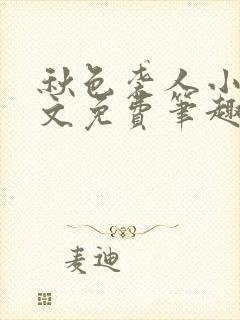 秋色袭人小
文免费笔趣
麦迪